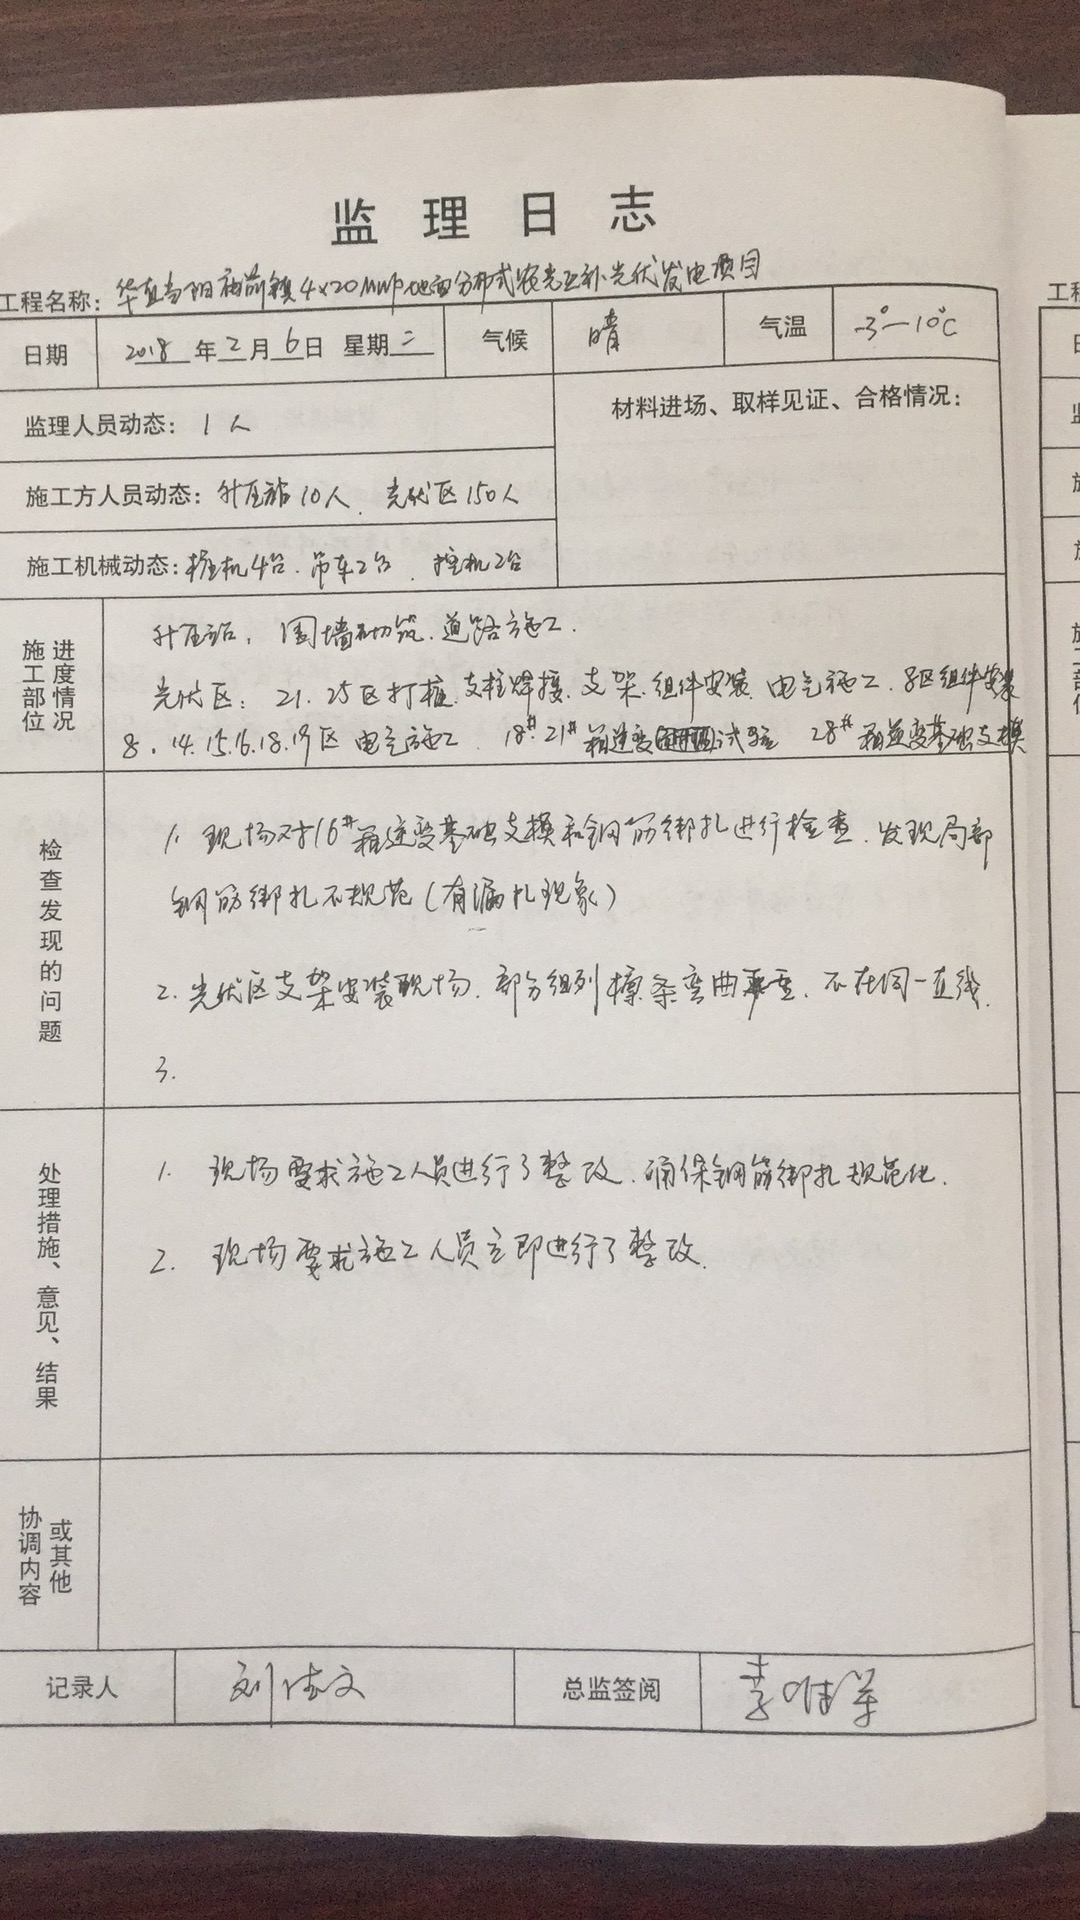 监理日志
工程名称：华直当阳庙前镇4×20MWp地面分布式农光互补光伏发电项目
日期 2018年2月6日 星期二 气候 晴 气温 -3°—10℃
监理人员动态：1人 材料进场、取样见证、合格情况：
施工方人员动态：升压站10人、光伏区150人
施工机械动态：桩机4台、吊车2台、挖机2台
施工部位进度情况
升压站：围墙砌筑、道路施工.
光伏区：21.25区打桩、支柱焊接、支架、组件安装、电气施工、8区组件安装
8、14.15.16.18.19区电气施工、18#.21#箱逆变试验 28#箱逆变基础支模
检查发现的问题
1. 现场对16#箱逆变基础支模和钢筋绑扎进行检查、发现局部
钢筋绑扎不规范（有漏扎现象）
2. 光伏区支架安装现场、部分组列檩条弯曲严重、不在同一直线.
3.
处理措施、意见、结果
1. 现场要求施工人员进行了整改、确保钢筋绑扎规范化.
2. 现场要求施工人员立即进行了整改.
协调内容或其他
记录人 总监签阅
工程